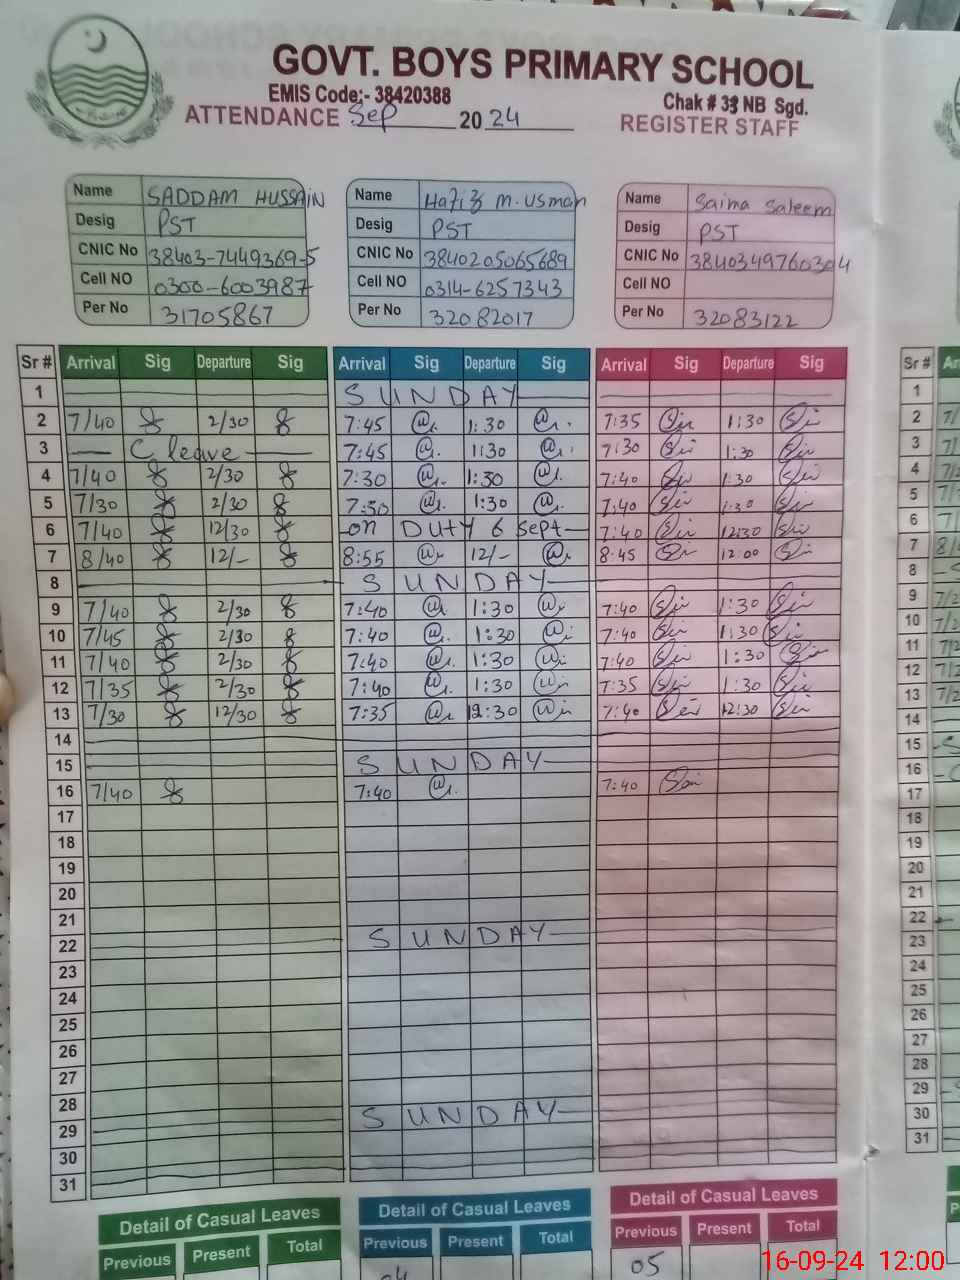 GOVT. BOYS PRIMARY SCHOOL
EMIS Code:- 38420388 Chak # 33 NB Sgd.
ATTENDANCE Sep 2024 REGISTER STAFF
Name SADDAM HUSSAIN Name Hafiz M. Usman Name Saima Saleem
Desig PST Desig PST Desig PST
CNIC No 38403-7449369-5 CNIC No 3840205065689 CNIC No 3840349760304
Cell NO 0300-6003987 Cell NO 0314-6257343 Cell NO
Per No 31705867 Per No 32082017 Per No 32083122
Sr # Arrival Sig Departure Sig Arrival Sig Departure Sig Arrival Sig Departure Sig Sr #
1 SUNDAY 1
2 7/40 2/30 7:45 1:30 7:35 1:30 2
3 C leave 7:45 1:30 7:30 1:30 3
4 7/40 2/30 7:30 1:30 7:40 1:30 4
5 7/30 2/30 7:30 1:30 7:40 1:30 5
6 7/40 12/30 on DUTY 6 sept 7:40 12:30 6
7 8/40 12/- 8:55 12/- 8:45 12:00 7
8 SUNDAY 8
9 7/40 2/30 7:40 1:30 7:40 1:30 9
10 7/45 2/30 7:40 1:30 7:40 1:30 10
11 7/40 2/30 7:40 1:30 7:40 1:30 11
12 7/35 2/30 7:40 1:30 7:35 1:30 12
13 7/30 12/30 7:35 12:30 7:40 12:30 13
14 14
15 SUNDAY 15
16 7/40 7:40 7:40 16
17 17
18 18
19 19
20 20
21 21
22 SUNDAY 22
23 23
24 24
25 25
26 26
27 27
28 28
29 SUNDAY 29
30 30
31 31
Detail of Casual Leaves Detail of Casual Leaves Detail of Casual Leaves
Previous Present Total Previous Present Total Previous Present Total
04 05
16-09-24 12:00